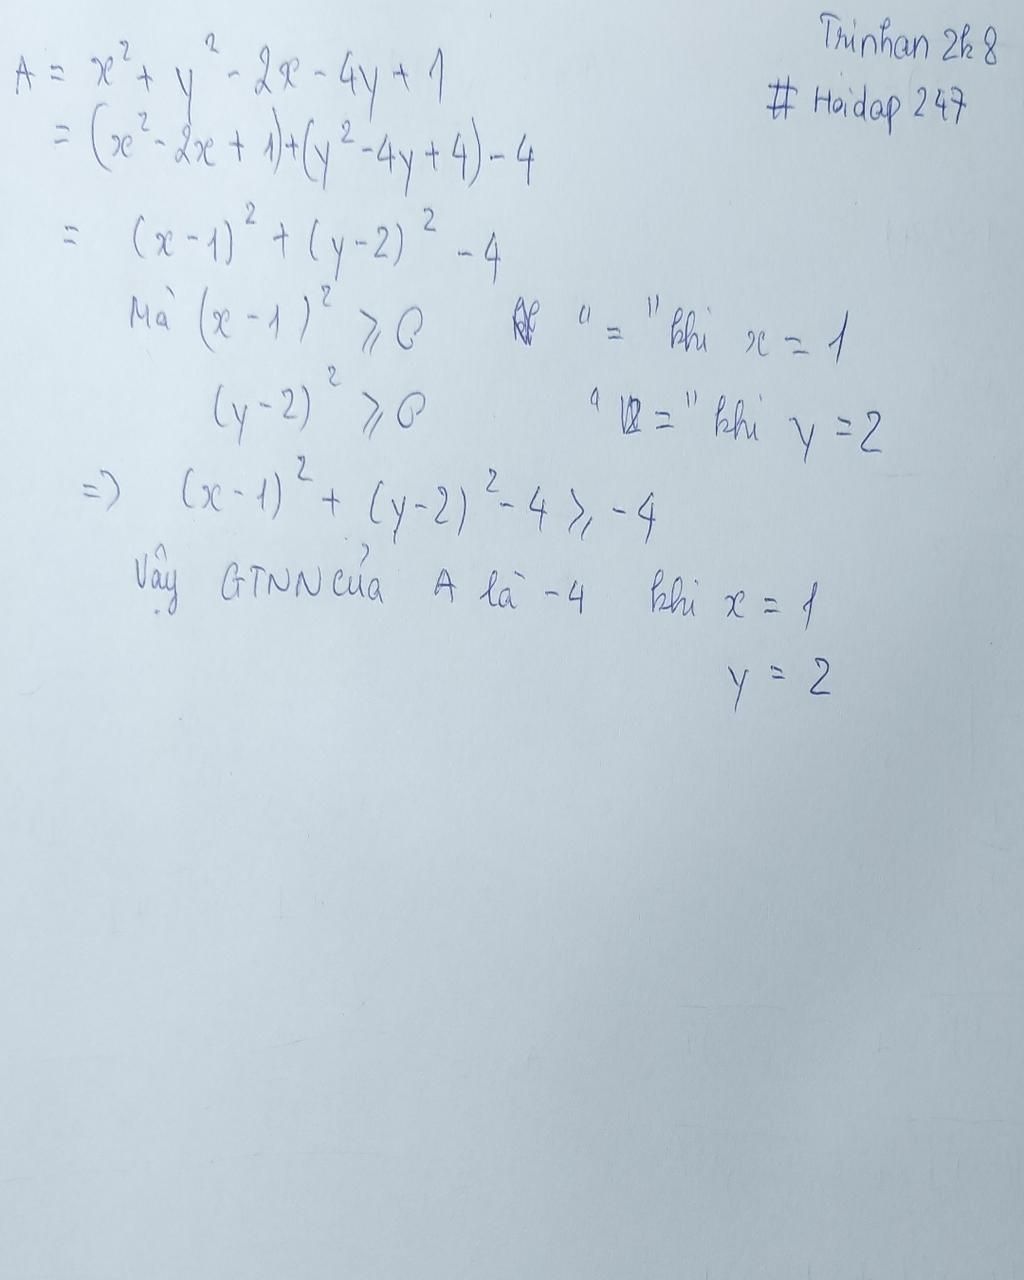 Trinhan 2k8
# Hoidap 247
A = x² + y² - 2x - 4y + 1
= (x² - 2x + 1) + (y² - 4y + 4) - 4
= (x - 1)² + (y - 2)² - 4
Mà (x - 1)² ⩾ 0 " = " khi x = 1
(y - 2)² ⩾ 0 " = " khi y = 2
=> (x - 1)² + (y - 2)² - 4 ⩾ - 4
Vậy GTNN của A là - 4 khi x = 1
y = 2